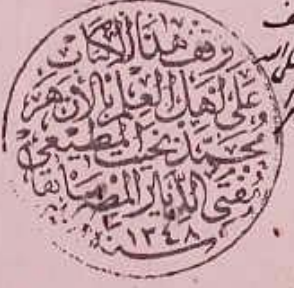 وقف هذا الكتاب
على أهل العلم بالأزهر
محمد بخيت المطيعى
مفتى الديار المصرية سابقا
سنة ١٣٤٨